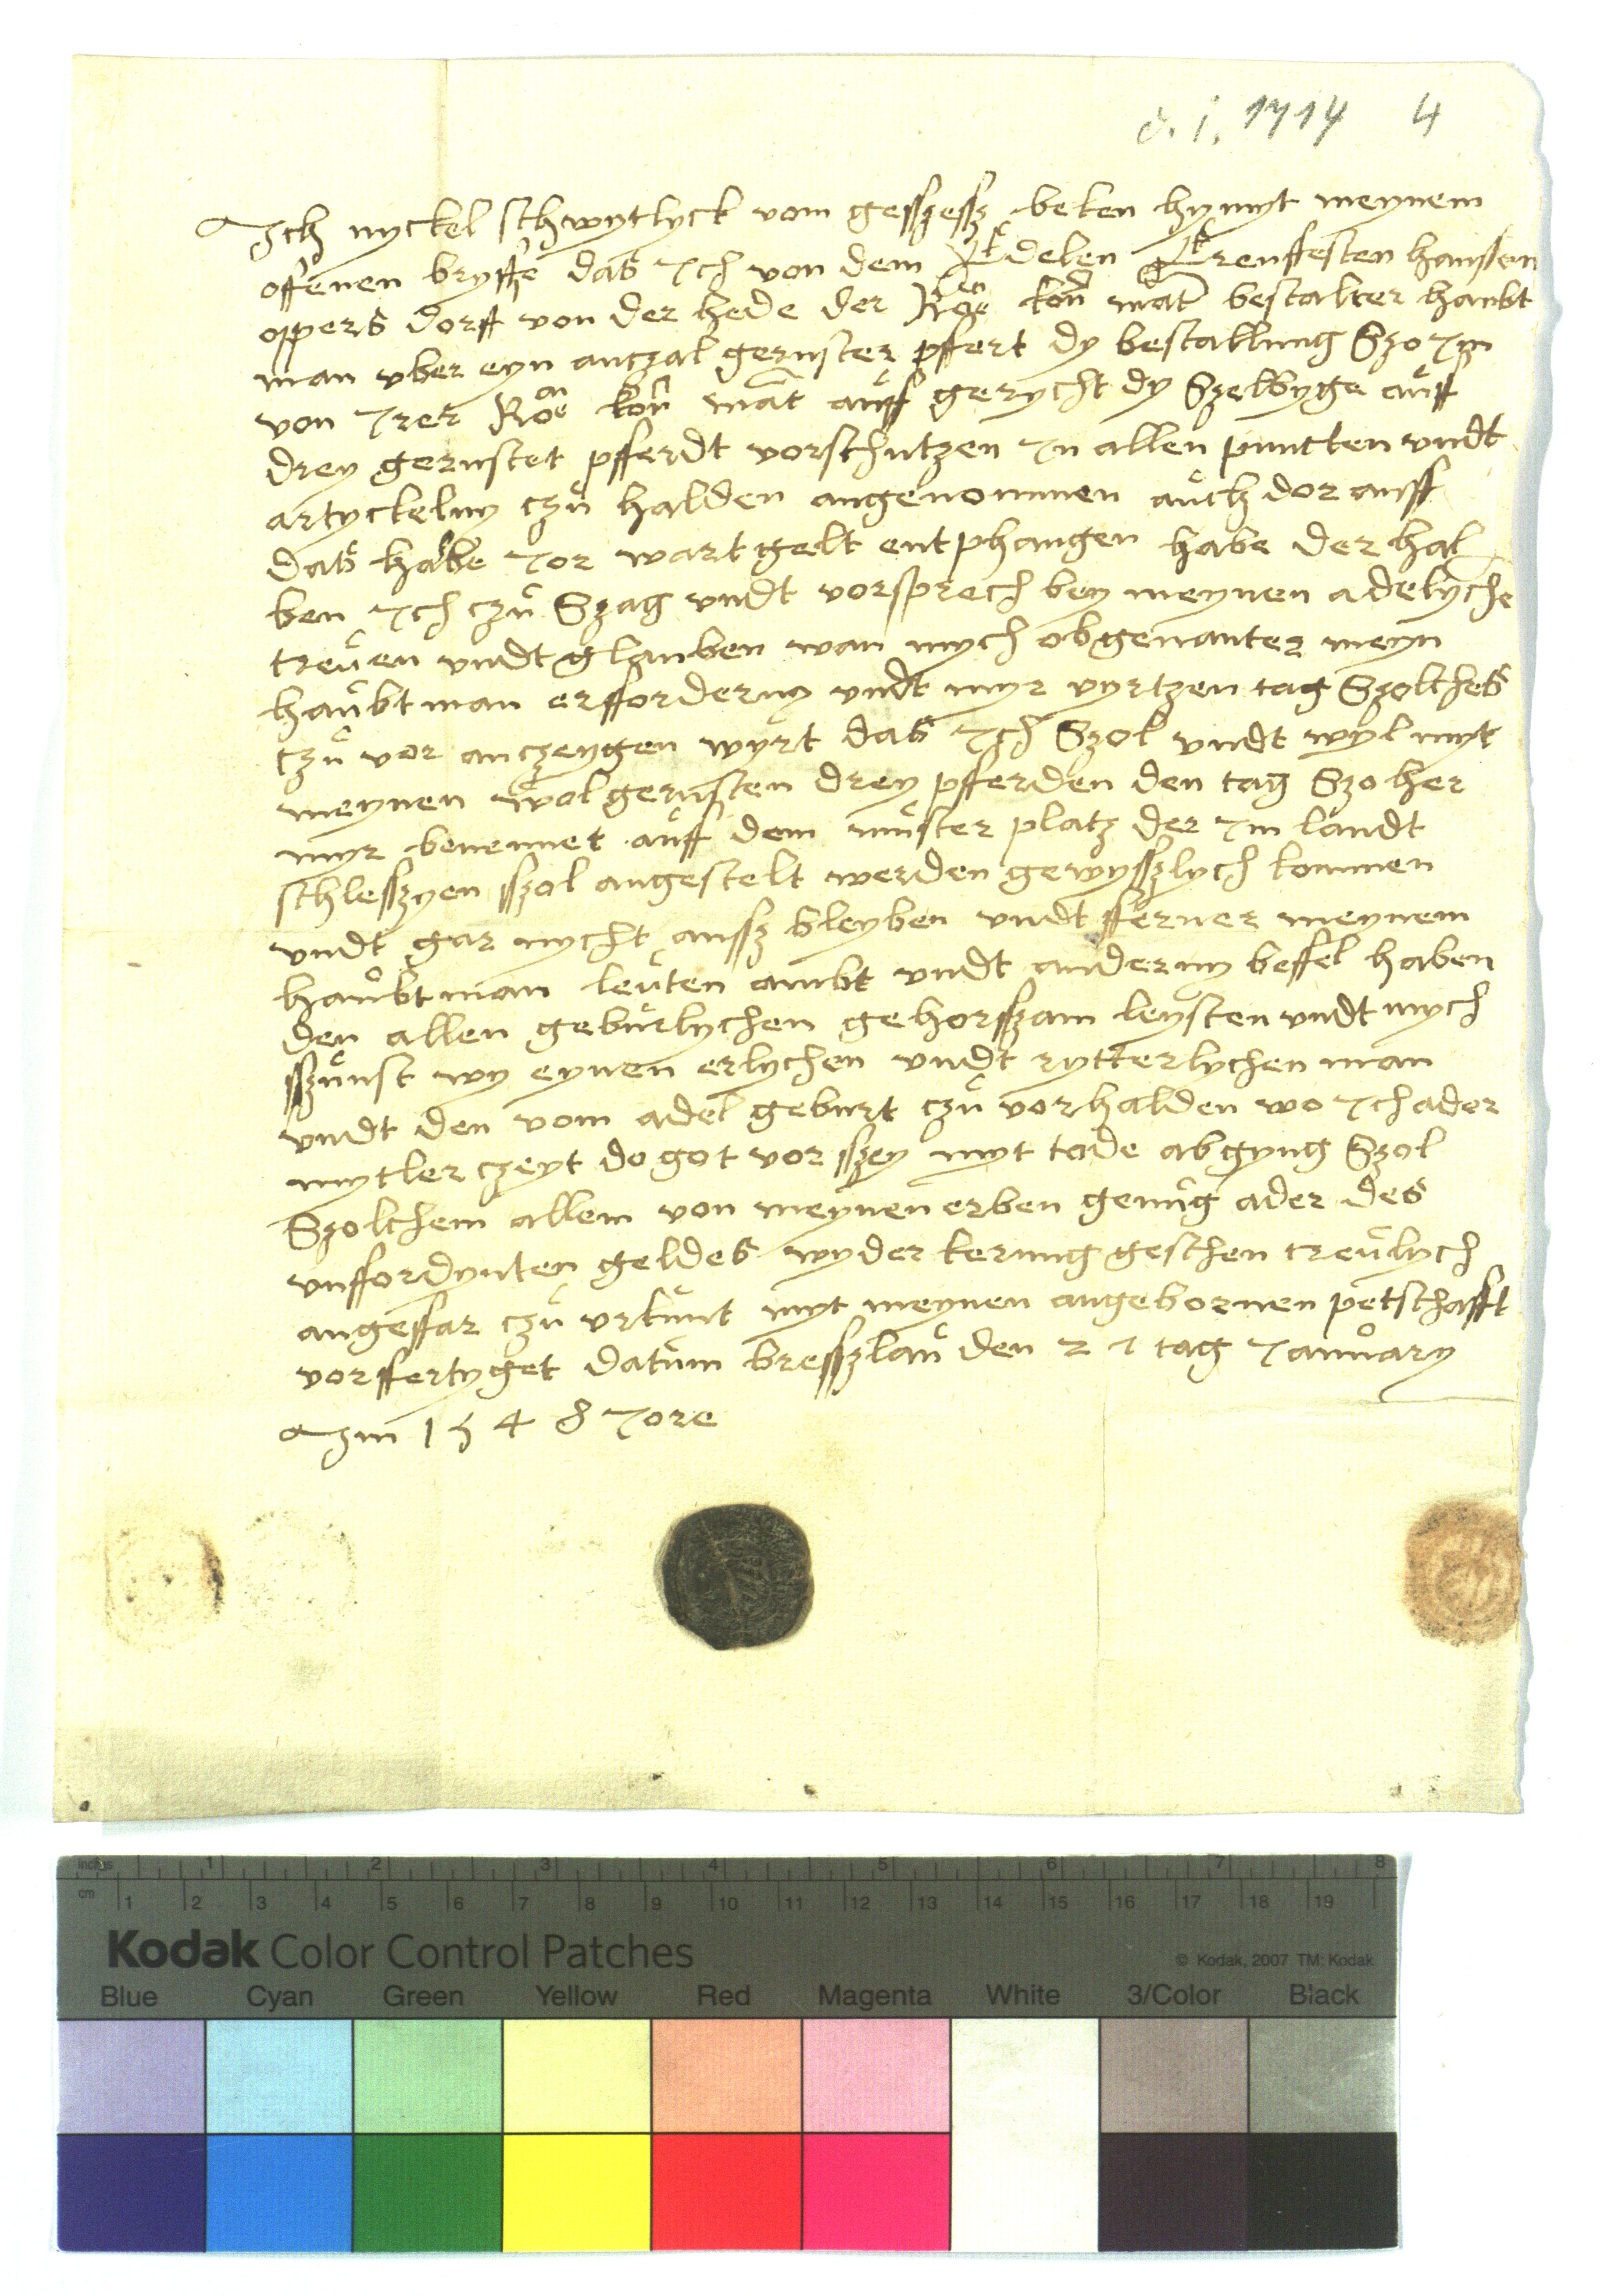 d. i. 1714 4
Ich nyckel schwytlyck vom gesszessz beken hymyt meynem
offenen bryffe das Ich von dem Edelen Erenffesten hanssen
oppers dorff von der hede der Röe kön mat bestalter haubt
man vber eyn anczal geruster pffert dy bestallung Szo Im
von Irer Röe kön mat auff gerycht dy Szelbyge auff
drey gerustet pfferdt vorschutzen In allen puncten vndt
artyckelnn czu halden angenommen auch dor auff
das habe Ior wart gelt entphangen habe der hal
ben Ich czu Szag vndt vorsprech bey meynen adelyche
treuen vndt glauben wan mych obgenanter meyn
haubtman erffordernn vndt myr vyrtzen tag Szolches
czu vor anczeygen wyrt das Ich Szol vndt wyl myt
meynen wolgerusten drey pfferden den tag Szo her
myr benennet auff dem muster platz der Im landt
schlesszyen sszol angestelt werden gewysszlych kommen
vndt gar nycht aussz bleyben vndt fferner meynem
haubtman leuten ambt vndt andernn beffel haben
den allen geburlychen gehorsszam leysten vndt mych
sszunst wy eynen erlychen vndt rytterlychen man
vndt den vom adel geburt czu vorhalden wo Ich ader
mytler czeyt do got vor sszey myt tode abgyng Szol
Szolchem allem von meynen erben genug ader des
vnffordynten geldes wyder kerung geschen treulych
angeffar czu urkunt myt meynen angebornen petschafft
vorffertyget datum bresszlau den 21 tag January
Im 1548 Iore
inches 1 2 3 4 5 6 7 8
cm 1 2 3 4 5 6 7 8 9 10 11 12 13 14 15 16 17 18 19
Kodak Color Control Patches © Kodak, 2007 TM: Kodak
Blue Cyan Green Yellow Red Magenta White 3/Color Black